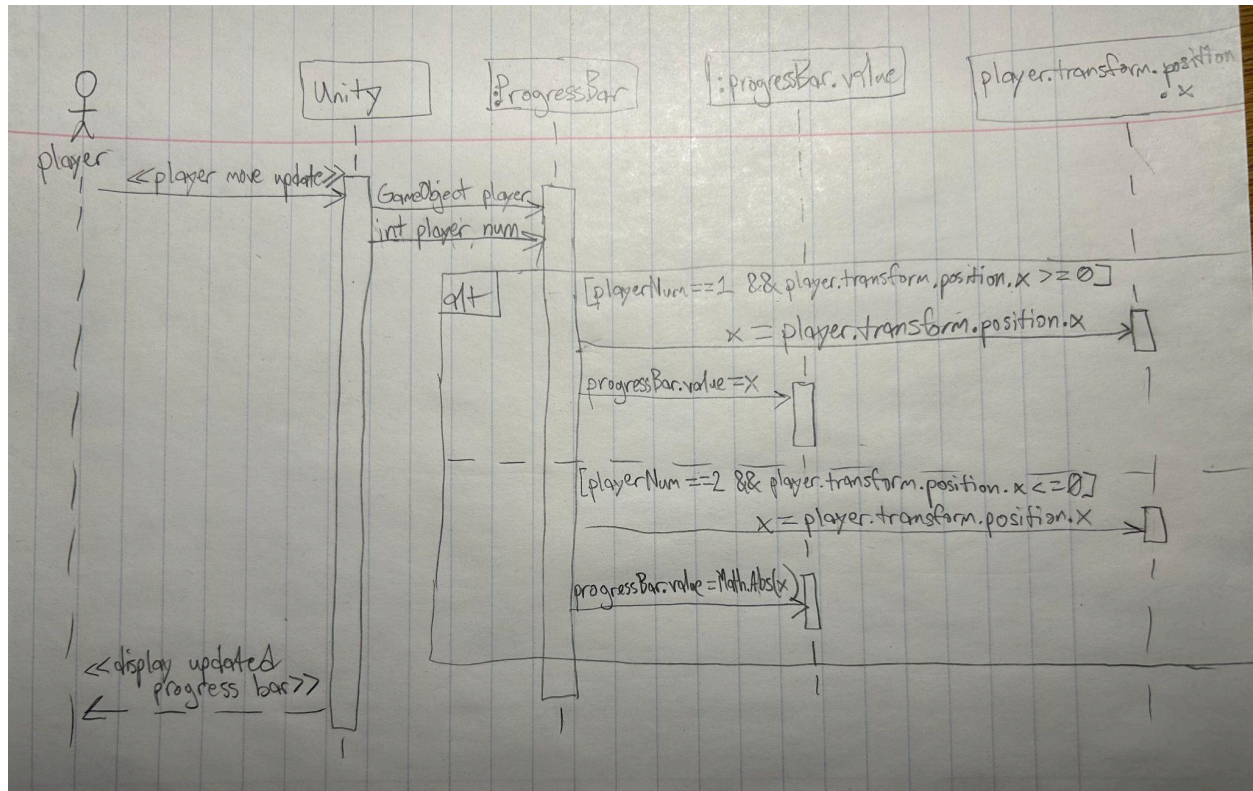 Unity
:ProgressBar
:progressBar.value
player.transform.position
.x
player
<<player move update>>
GameObject player
int player num
alt
[playerNum==1 && player.transform.position.x >=0]
x = player.transform.position.x
progressBar.value=x
[playerNum==2 && player.transform.position.x <=0]
x = player.transform.position.x
progressBar.value=Math.Abs(x)
<<display updated
progress bar>>